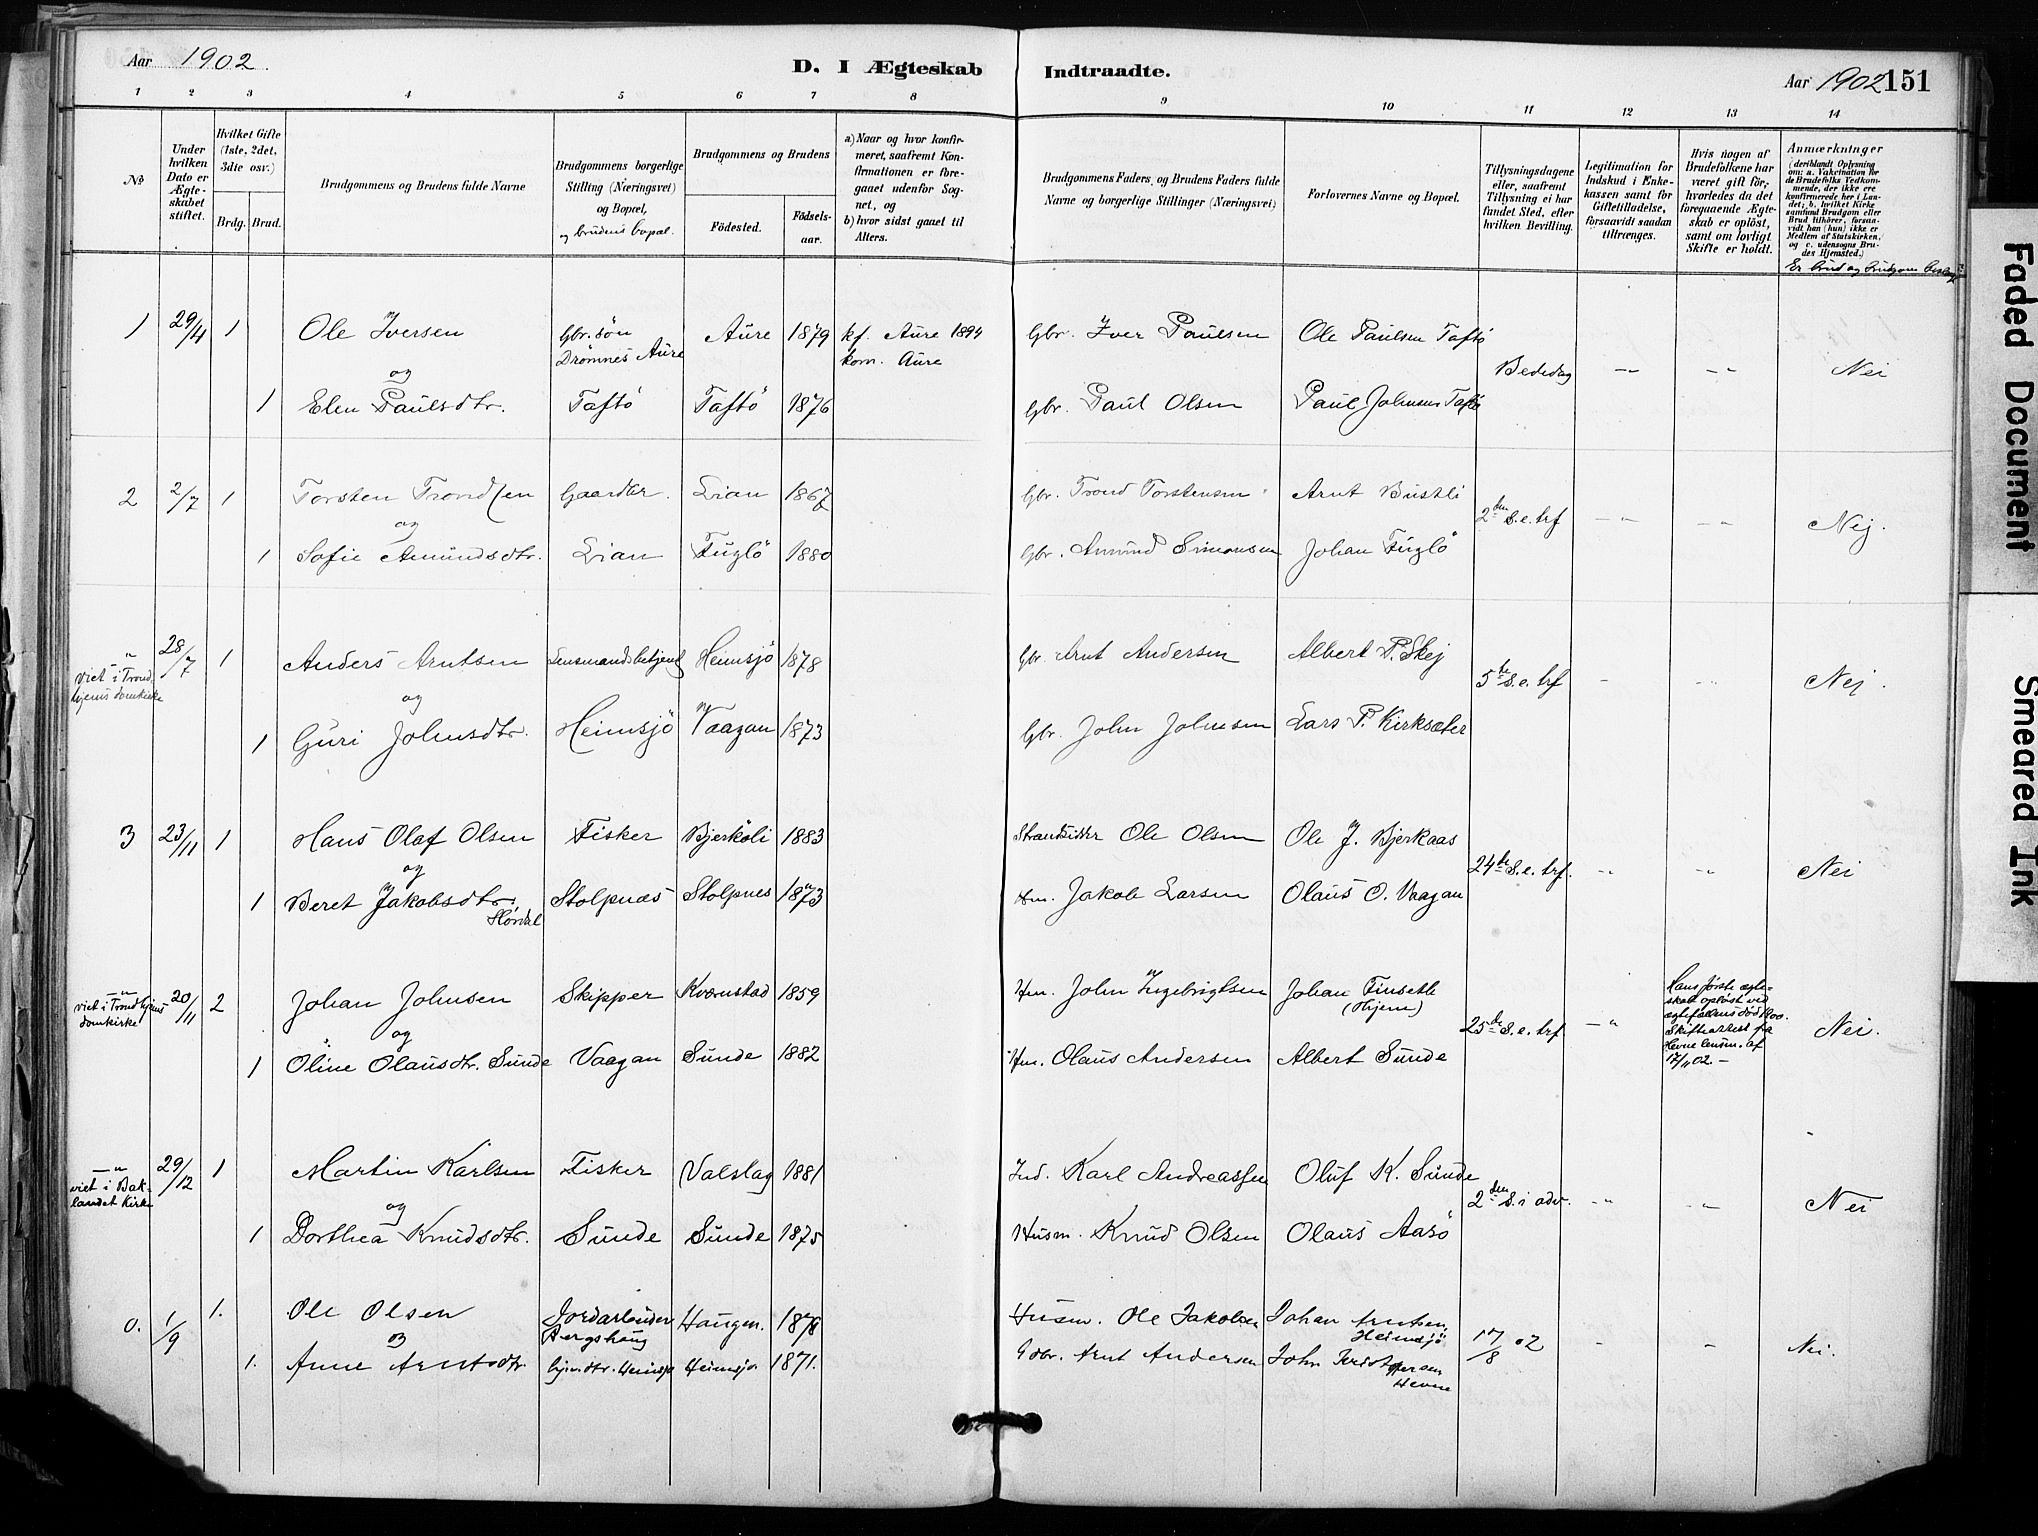 Aar 1902.
D. I Ægteskab Indtraadte.
Aar 1902 151
1 2 3 4 5 6 7 8 9 10 11 12 13 14
No
Under hvilken Dato er Ægteskabet stiftet.
Hvilket Gifte (1ste, 2det, 3die osv.)
Brdg. Brud.
Brudgommens og Brudens fulde Navne
Brudgommens borgerlige Stilling (Næringsvei) og Bopæl, og brudens bopæl.
Brudgommens og Brudens
Fødested.
Fødsels-aar.
a) Naar og hvor konfirmeret, saafremt Konfirmationen er foregaaet udenfor Sognet, og
b) hvor sidst gaaet til Alters.
Brudgommens Faders, og Brudens Faders fulde Navne og borgerlige Stillinger (Næringsvei)
Forlovernes Navne og Bopæl.
Tillysningsdagene eller, saafremt Tillysning ei har fundet Sted, efter hvilken Bevilling.
Legitimation for Indskud i Enkekassen samt for Giftetilladelse, forsaavidt saadan tiltrænges.
Hvis nogen af Brudefolkene har været gift før, hvorledes da det foregaaende Ægteskab er opløst, samt om lovligt Skifte er holdt.
Anmærkninger
(deriblandt Oplysning om: a. Vakcination for de Brudefolks Vedkommende, der ikke ere konfirmerede her i Landet; b. hvilket Kirkesamfund Brudgom eller Brud tilhører, forsaavidt han (hun) ikke er Medlem af Statskirken, og c. udensogns Brudes Hjemsted.)
1 29/4 1 Ole Iversen Gbr. søn Drømnes Aure Aure 1879 kf. Aure 1894 kom. Aure Gbr. Iver Paulsen Ole Paulsen Taftö
og Bededag -"- -"- Nei
1 Elen Paulsdtr. Taftö Taftö 1876 Gbr. Paul Olsen Paul Johnsen Taftö
2 2/7 1 Torsten Trondsen Gaardbr. Lian 1867 Gbr. Trond Torstensen Arnt Bustli
og 2den S. e. trf -"- -"- Nej.
1 Sofie Amundsdtr. Lian Fuglö 1880 Gbr. Amund Simonsen Johan Fuglö
-"- viet i Trondhjems domkirke 28/7 1 Anders Arntsen Lensmandsbetjent Heimsjö 1878 Gbr. Arnt Andersen Albert P. Skej
og 5te S. e. trf - -"- Nej.
1 Guri Johnsdtr. Heimsjö Vaagan 1873 Gbr. John Johnsen Lars P. Kirksæter
3 23/11 1 Hans Olaf Olsen Fisker Bjerkøli 1883 Strandsidder Ole Olsen Ole J. Bjerkaas
og 24de S. e. trf. -"- -"- Nei
1 Beret Jakobsdtr. Stolpnæs Stolpnes 1873 Hm. Jakob Larsen Olaus O. Vaagan
-"- viet i Trondhjems domkirke 20/11 2 Johan Johnsen Skipper Kværnstad 1859 Hm. John Ingebrigtsen Johan Finseth (Hjem)
og 25de S. e. trf -"- Hans første ægteskab opløst ved ægtefællens død 1800. Skifteattest fra Hevne lensm. af 17/11 02. - Nei.
1 Oline Olausdtr. Sunde Vaagan Sunde 1882 Hm. Olaus Andersen Albert Sunde
-"- viet i Baklandet Kirke 29/12 1 Martin Karlsen Fisker Valslag 1881 Ind. Karl Andreassen Oluf K. Sunde
og 2den S. i adv. -"- -"- Nei
1 Dorthea Knudsdtr. Sunde Sunde 1875 Husm. Knud Olsen Olaus Aasö
0. 1/9 1. Ole Olsen Jordarbeider Bergshaug Haugen. 1878 Husm. Ole Jakobsen Johan Arntsen Heimsjö
og 17/8 02 - -"- Nei.
1. Anne Arntsdtr. Heimsjø Heimsjø 1871. Gdbr. Arnt Andersen John Kristoffersen Hevne
Faded Document
Smeared Ink